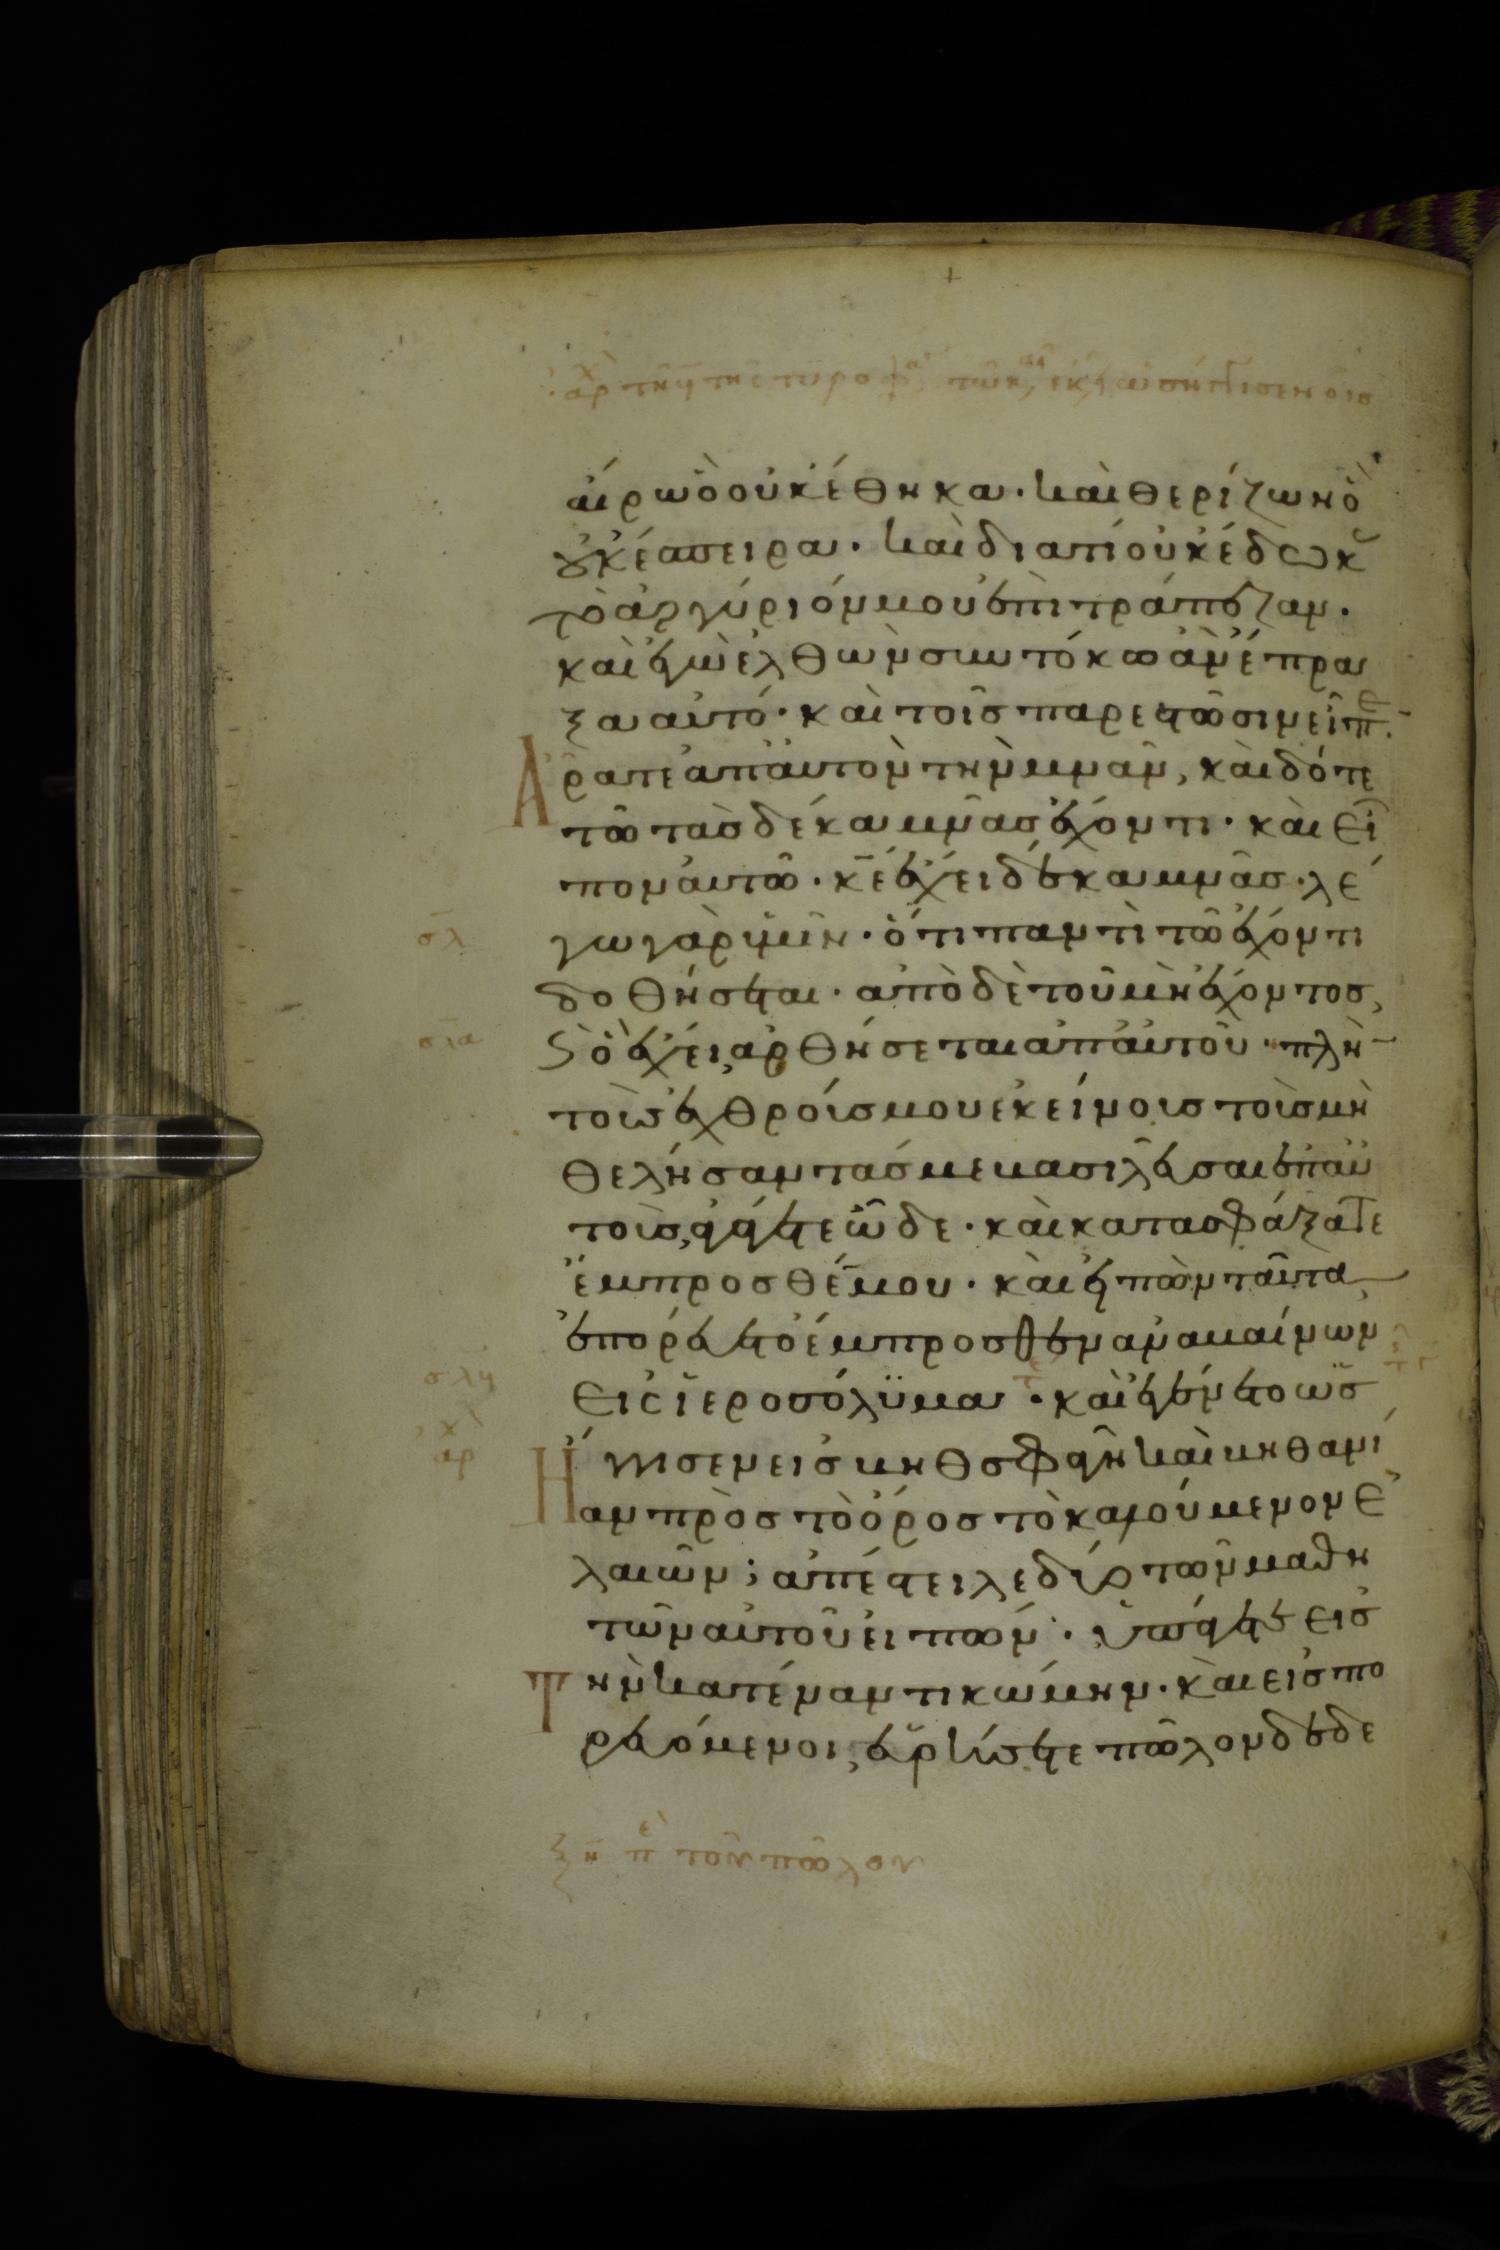 αίρω ὃ οὐκ έθηκα · καὶ θερίζων ὃ
οὐκ έσπειρα · καὶ διατί οὐκ έδωκασ
τὸ ἀργύριόν μου ἐπὶ τράπεζαν ·
καὶ ἐγὼ ἐλθὼν σὺν τόκω ἀν έπρα
ξα αυτό · καὶ τοῖσ παρεστῶσιν εἶπεν ·
Ἄρατε ἀπ αυτοῦ τὴν μνᾶν, καὶ δότε
τῶ τὰσ δέκα μνᾶσ ἔχοντι · καὶ εἶ
πον αυτῶ · κ̅ε̅ ἔχει δέκα μνᾶσ · λέ
γω γὰρ ὑμῖν · ὅτι παντὶ τῶ ἔχοντι
δοθήσεται · ἀπὸ δὲ τοῦ μὴ ἔχοντοσ,
ϛ ὃ ἔχει, ἀρθήσεται ἀπ αυτοῦ · πλὴν
τοὺσ ἐχθρούσ μου ἐκείνουσ τοὺσ μὴ
θελήσαντάσ με βασιλεῦσαι ἐπ αὐ
τοὺσ, ἀγάγετε ὧδε · καὶ κατασφάξατε
ἔμπροσθέν μου · καὶ εἰπὼν ταῦτα
ἐπορεύετο έμπροσθεν ἀναβαίνων
εισ ἱεροσόλυμα · καὶ ἐγένετο ὡσ
Ἤγγισεν εισ βηθσφαγῆ καὶ βηθανί
αν πρὸσ τὸ ὄροσ τὸ καλούμενον ἐ
λαιῶν ; ἀπέστειλε δύο τῶν μαθη
τῶν αυτοῦ ειπών · ὑπάγετε εισ
Τὴν κατέναντι κώμην · καὶ εισπο
ρευόμενοι, εὑρήσετε πῶλον δεδε